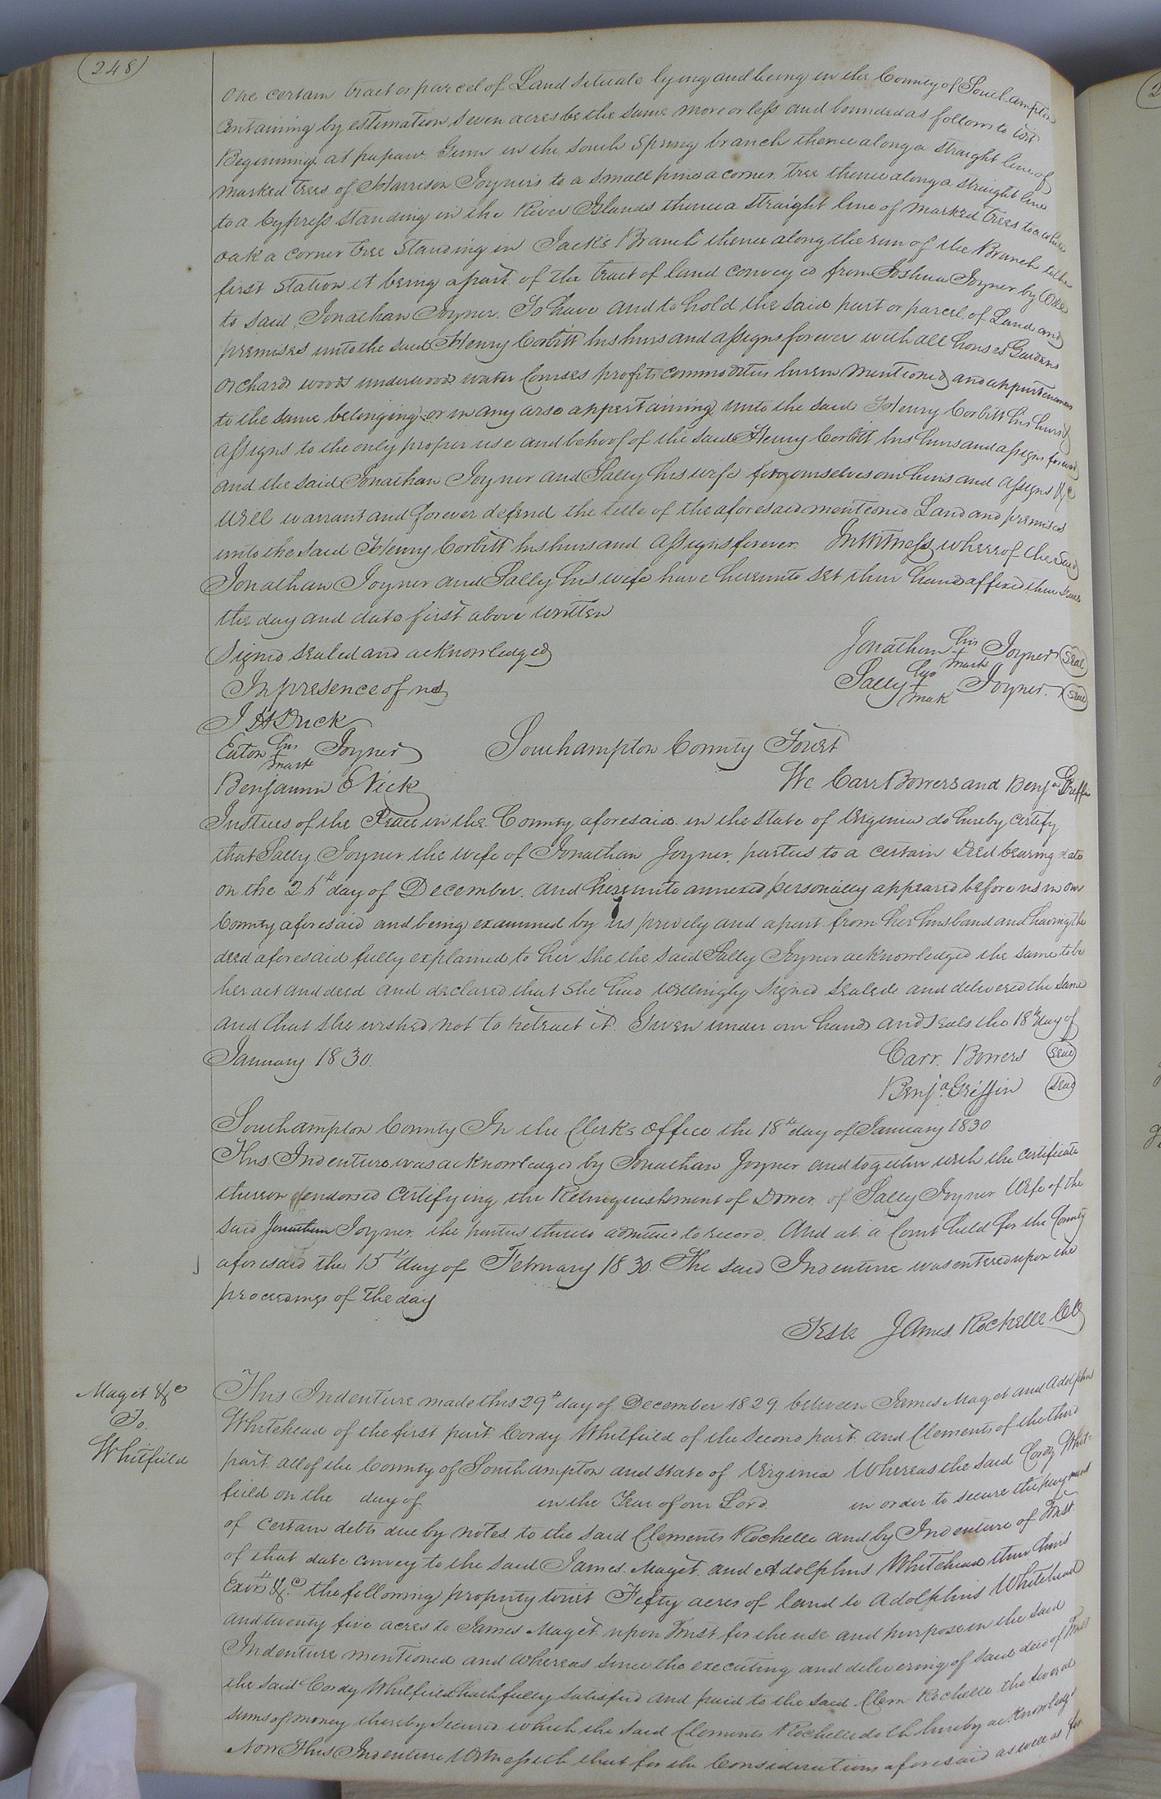 (248)
One certain tract or parcel of Land situate lying and being in the County of Southampton
Containing by estimation Seven acres be the same more or less and bounded as follows to wit
Beginning at papaw Gum in the south Spring branch thence along a straight line of
marked trees of Harrison Joyner's to a small pine a corner tree thence along a straight line
to a Cypress standing in the River Islands thence a straight line of marked trees to a white
oak a corner tree standing in Jack's Branch thence along the run of the Branch to the
first station it being a part of the tract of land conveyed from Joshua Joyner by
to said Jonathan Joyner. To have and to hold the said part or parcel of Land and
premises unto the said Henry Corbitt his heirs and assigns forever with all houses Gardens
orchards woods underwoods water Courses profits commodities herein mentioned and appurtenances
to the same belonging or in any wise appertaining unto the said Henry Corbitt his heirs &
assigns to the only proper use and behoof of the said Henry Corbitt his heirs and assigns forever
and the said Jonathan Joyner and Sally his wife for ourselves our heirs and assigns &c
Will warrant and forever defend the title of the aforesaid mentioned Land and premises
unto the said Henry Corbitt his heirs and assigns forever. In witness whereof the said
Jonathan Joyner and Sally his wife have hereunto set their hands affixed their seals
the day and date first above written
Signed sealed and acknowledged
In presence of us
Jonathan his + mark Joyner (seal)
Sally her + mark Joyner (seal)
J H Drick
Eaton his + mark Joyner
Benjamin E Vick
Southampton County Towit
We Carr Bowers and Benja Griffin
Justices of the Peace in the County aforesaid in the State of Virginia do hereby certify
that Sally Joyner the wife of Jonathan Joyner, parties to a certain Deed bearing date
on the day of December. and hereunto annexed personally appeared before us in our
County aforesaid and being examined by us privily and apart from her husband and having the
deed aforesaid fully explained to her she the said Sally Joyner acknowledged the same to be
her act and deed and declared that she had willingly signed sealed and delivered the same
and that she wished not to retract it. Given under our hands and seals the 18th day of
January 1830.
Carr. Bowers (seal)
Benja Griffin (seal)
Southampton County In the Clerks Office the 18th day of January 1830
This Indenture was acknowledged by Jonathan Joyner and together with the certificate
thereon endorsed Certifying the Relinquishment of Dower of Sally Joyner Wife of the
said Jonathan Joyner the parties thereto admitted to record. And at a Court held for the County
aforesaid the 15th day of February 1830. The said Indenture was entered upon the
proceedings of the day
Teste James Rochelle Clk
Maget &c
To
Whitfield
This Indenture made this 29th day of December 1829 between James Maget and Adolphus
Whitehead of the first part Cordy Whitfield of the second part and Clements of the third
part all of the County of Southampton and state of Virginia Whereas the said Cordy Whit-
field on the day of in the Year of our Lord in order to secure the payment
of certain debts due by notes to the said Clements Rochelle and by Indenture of Trust
of that date convey to the said James Maget and Adolphus Whitehead their heirs
Exors &c the following property towit Fifty acres of land to Adolphus Whitehead
and twenty five acres to James Maget upon Trust for the use and purpose in the said
Indenture mentioned and whereas since the executing and delivering of said deed of Trust
the said Cordy Whitfield hath fully satisfied and paid to the said Clem Rochelle the several
sums of money thereby secured which the said Clements Rochelle doth hereby acknowledge
Now This Indenture Witnesseth that for the Considerations aforesaid as well as for